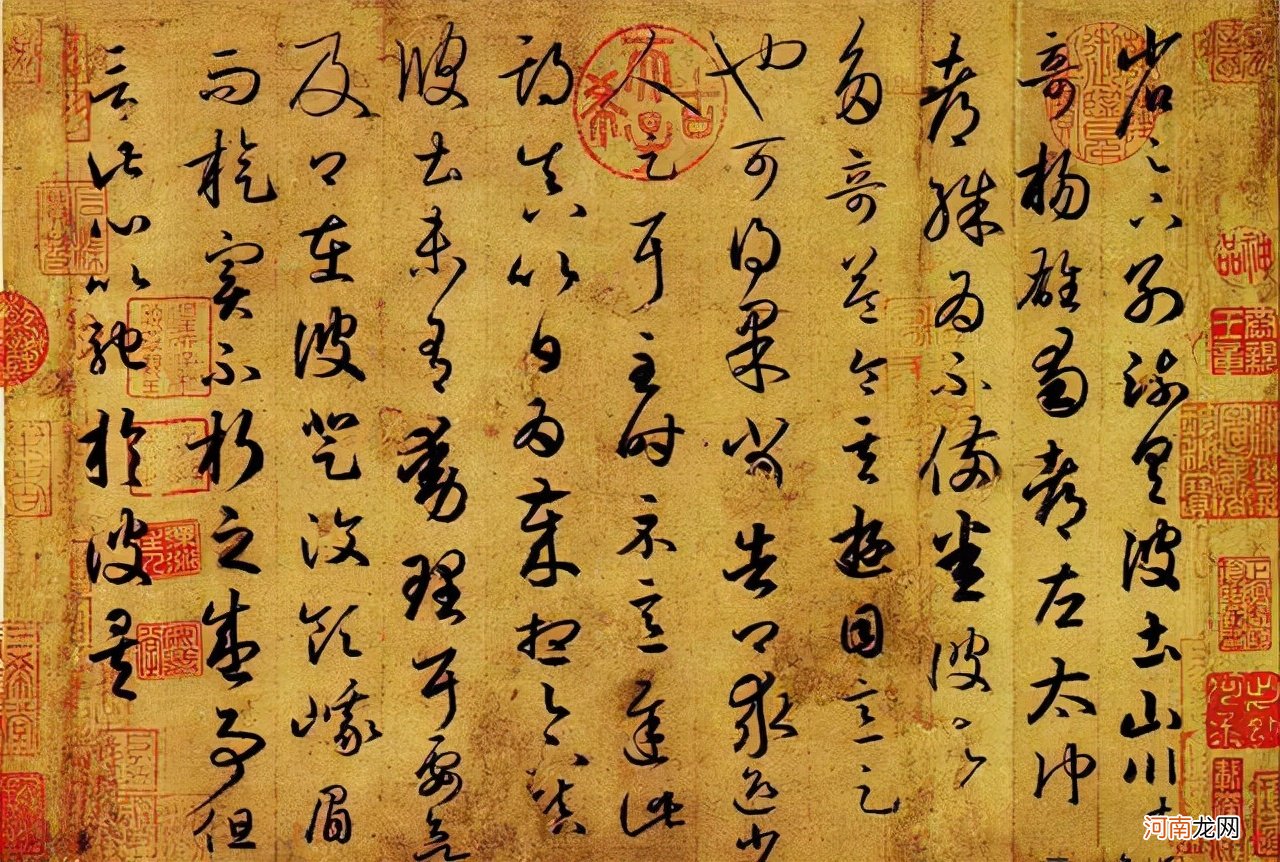 省足下別疏具彼土山川諸
奇楊雄蜀都左太沖
都殊為不備悉彼故
多奇益令其遊目意足
也可得果當告卿求迎少
人足耳至時示意遲此
期真以日為歲想足下鎮
彼土未有動理耳要欲
及卿在彼登汶領峨眉
而旋實不朽之盛事但
言此心以馳於彼矣
神品
河南龙网